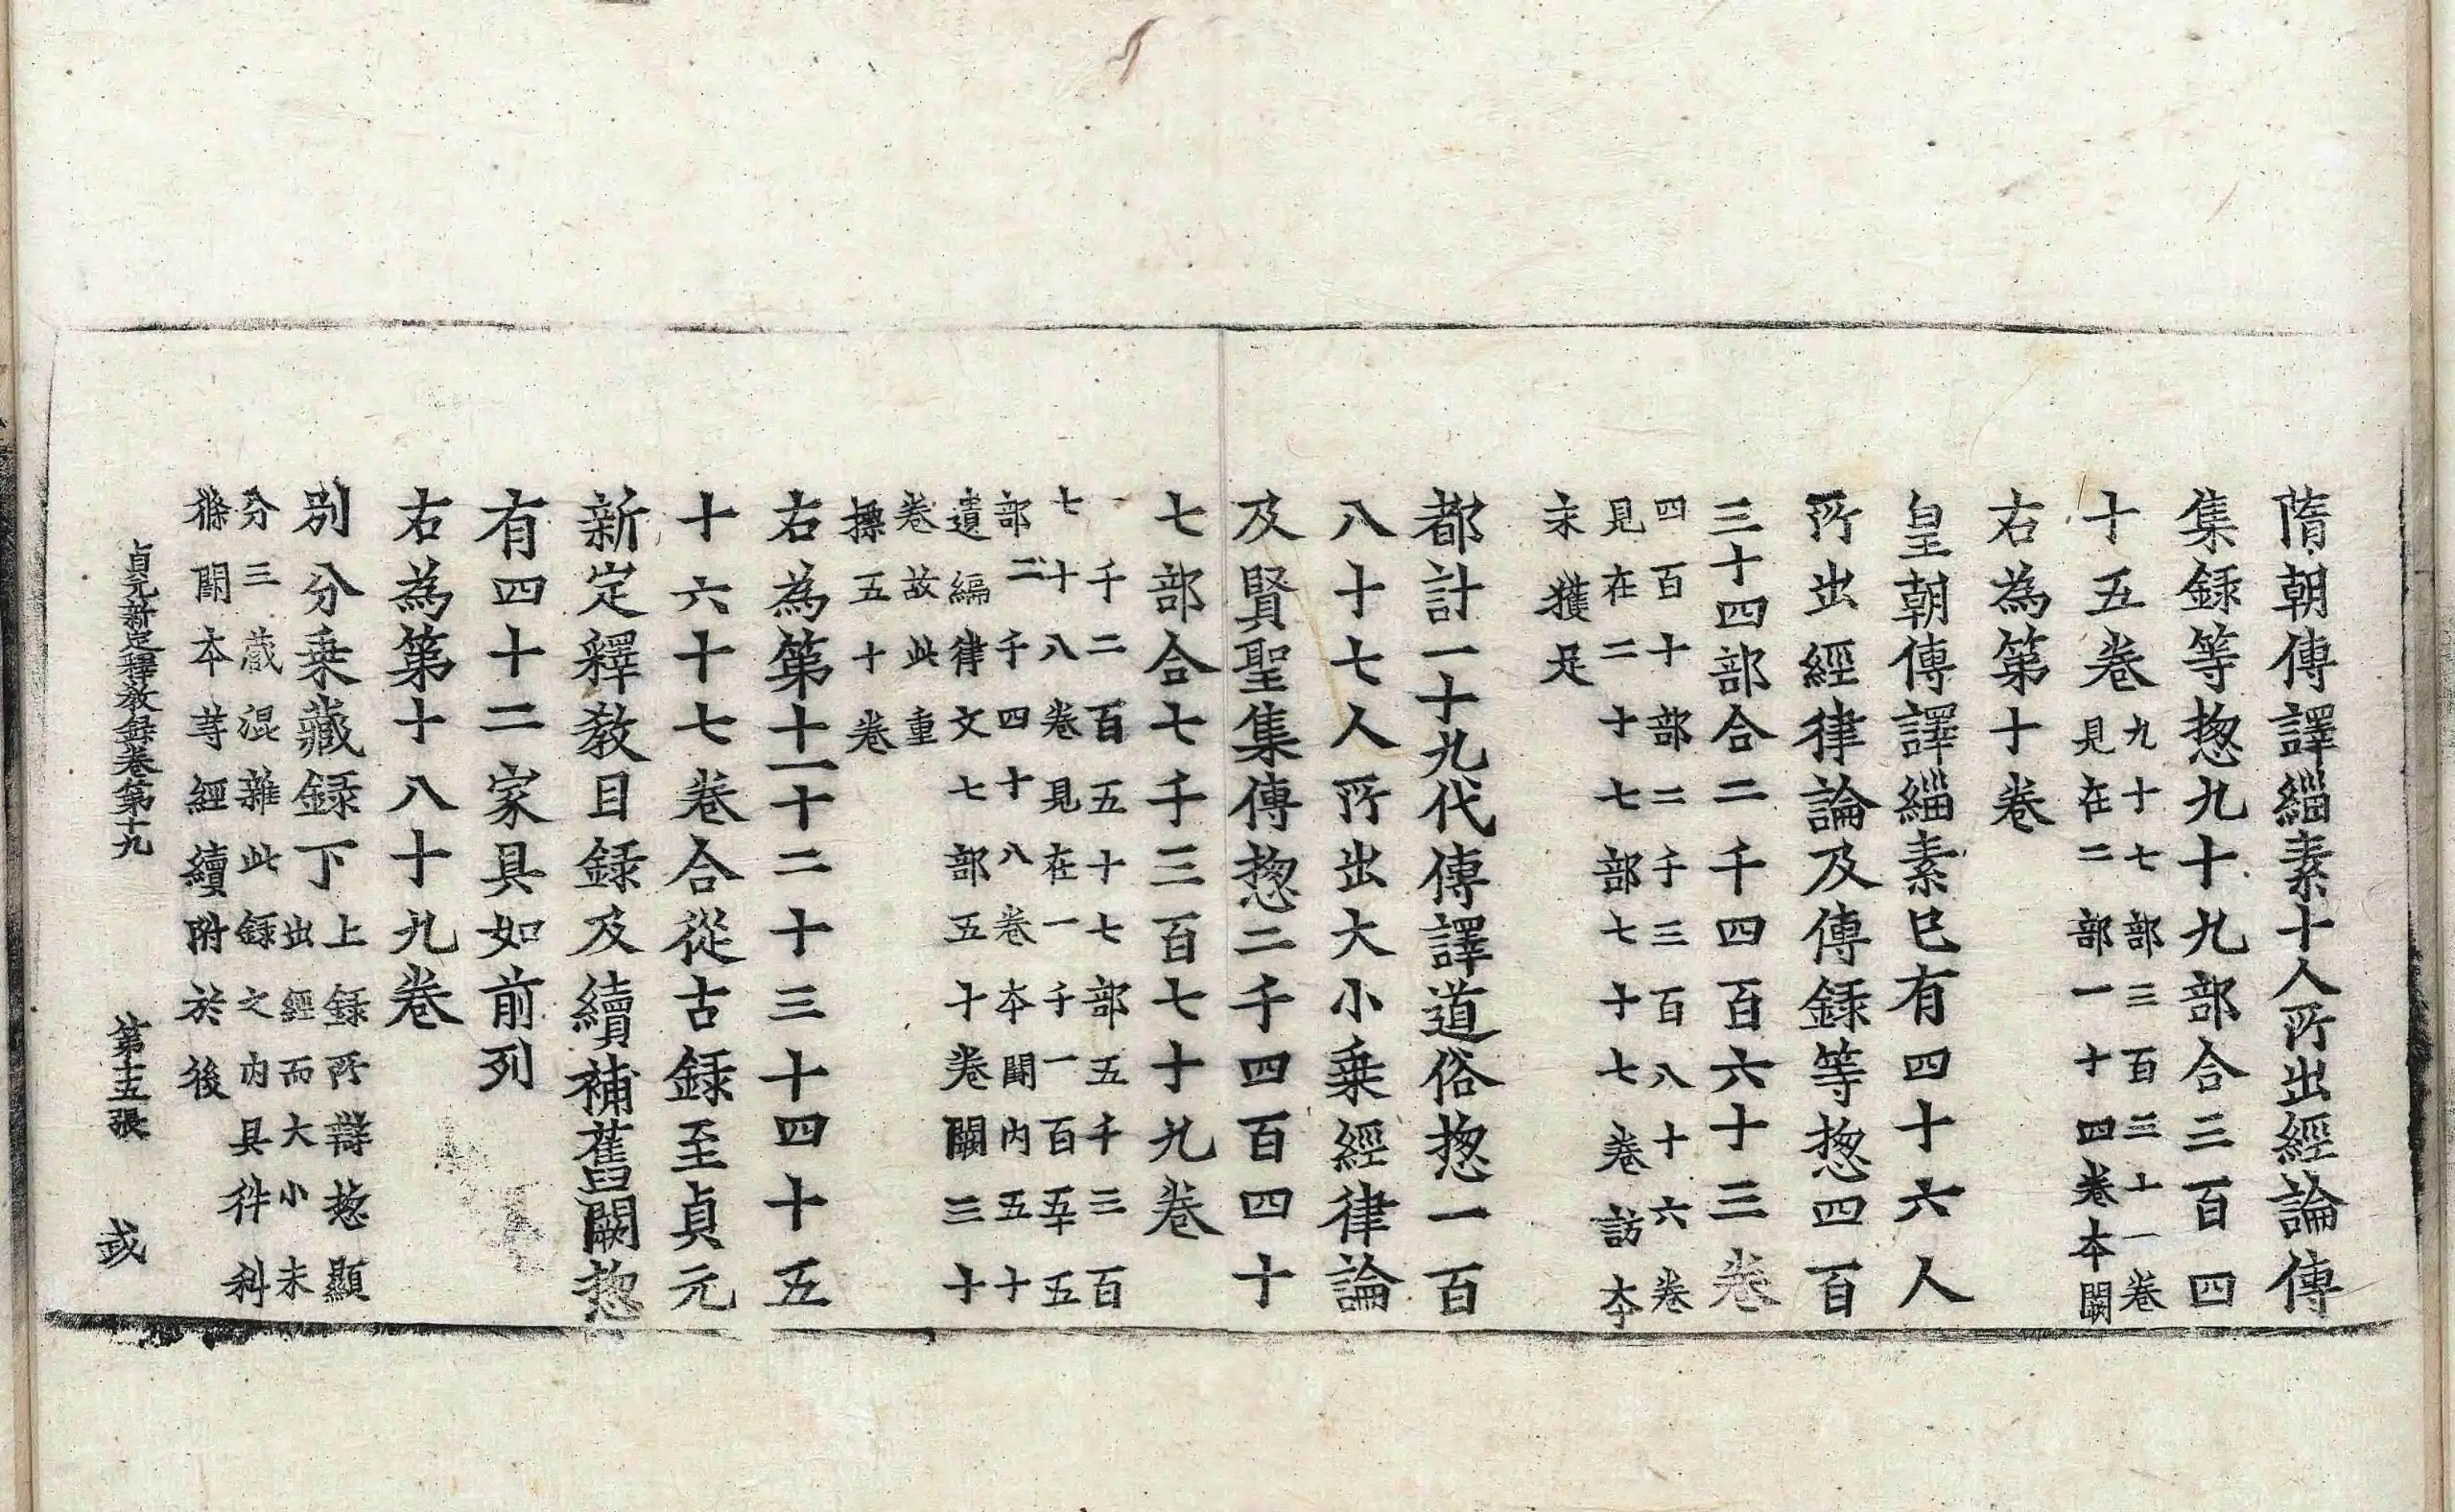 隋朝傳譯緇素十人所出經論傳
集録等揔九十九部合三百四
十五卷九十七部三百三十一卷
見在二部一十四卷本闕
右為第十卷
皇朝傳譯緇素巳有四十六人
所出經律論及傳録等揔四百
三十四部合二千四百六十三卷
四百十部二千三百八十六卷
見在二十七部七十七卷訪本
未獲足
都計一十九代傳譯道俗揔一百
八十七人所出大小乗經律論
及賢聖集傳揔二千四百四十
七部合七千三百七十九卷
一千二百五十七部五千三百
七十八卷見在一千一百五十五
部二千四十八卷本闕内五十
遺編律文七部五十卷闕三十
卷故此重
㩧五十卷
右為第十一十二十三十四十五
十六十七卷合從古録至貞元
新定釋教目録及續補舊闕揔
有四十二家具如前列
右為第十八十九卷
別分乗藏録下上録所辯揔顯
出經而大小未
分三藏混雜此録之内具件科
條闕本䓁經續附於後
貞元新定釋教録卷第十九　第十五張　或